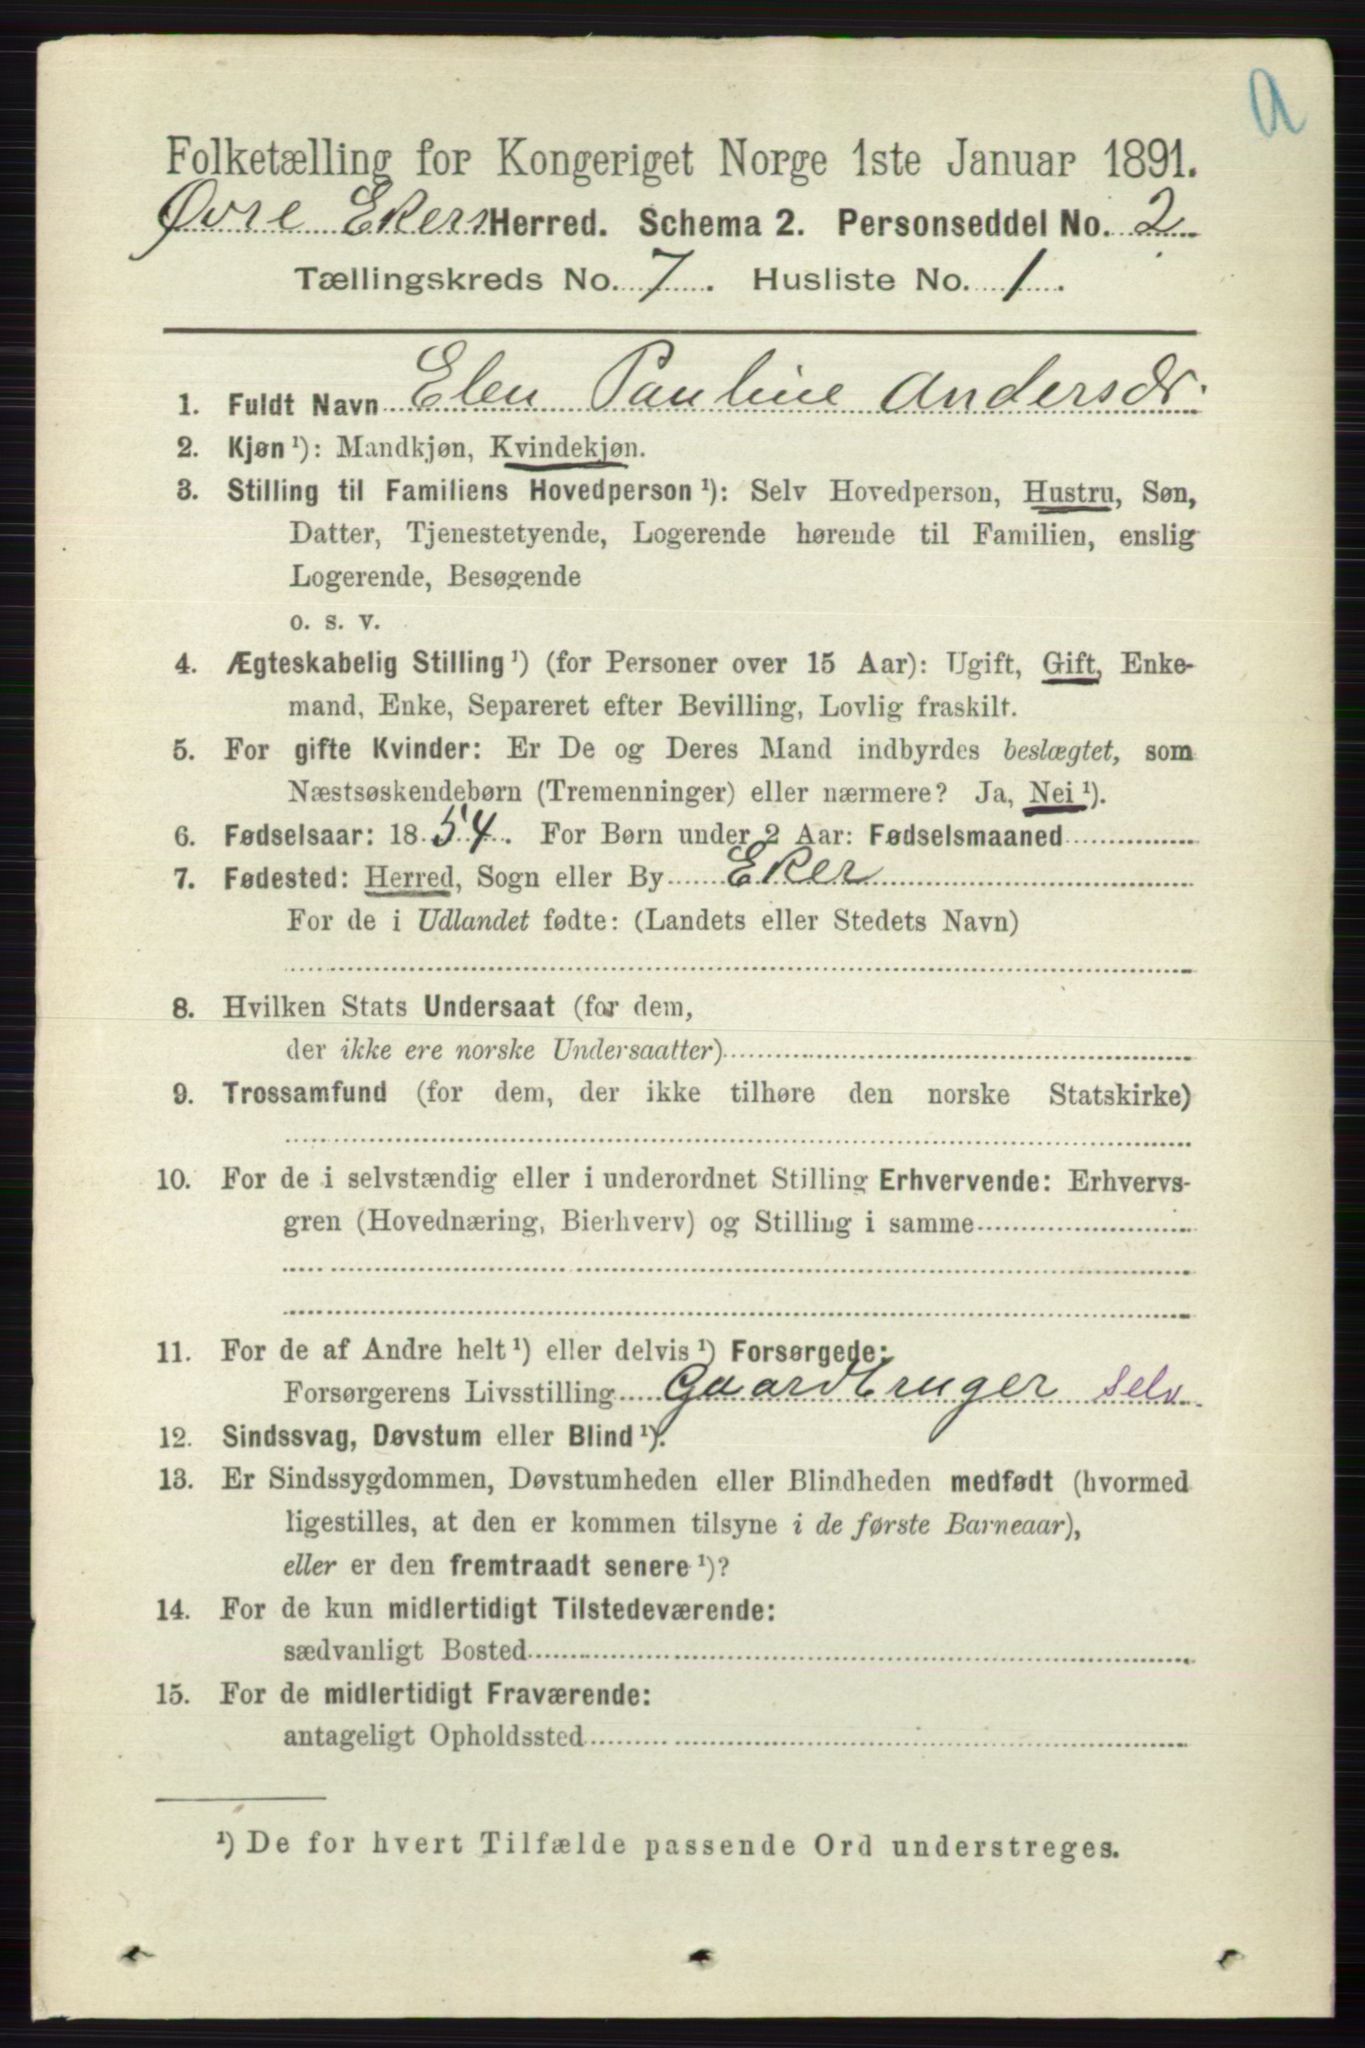 a
Folketælling for Kongeriget Norge 1ste Januar 1891.
Øvre Ekers Herred. Schema 2. Personseddel No. 2
Tællingskreds No. 7. Husliste No. 1.
1. Fuldt Navn Elen Pauline Andersdr.
2. Kjøn ¹): Mandkjøn, Kvindekjøn.
3. Stilling til Familiens Hovedperson ¹): Selv Hovedperson, Hustru, Søn,
Datter, Tjenestetyende, Logerende hørende til Familien, enslig
Logerende, Besøgende
o. s. v.
4. Ægteskabelig Stilling ¹) (for Personer over 15 Aar): Ugift, Gift, Enke-
mand, Enke, Separeret efter Bevilling, Lovlig fraskilt.
5. For gifte Kvinder: Er De og Deres Mand indbyrdes beslægtet, som
Næstsøskendebørn (Tremenninger) eller nærmere? Ja, Nei ¹).
6. Fødselsaar: 1854. For Børn under 2 Aar: Fødselsmaaned
7. Fødested: Herred, Sogn eller By Eker
For de i Udlandet fødte: (Landets eller Stedets Navn)
8. Hvilken Stats Undersaat (for dem,
der ikke ere norske Undersaatter)
9. Trossamfund (for dem, der ikke tilhøre den norske Statskirke)
10. For de i selvstændig eller i underordnet Stilling Erhvervende: Erhvervs-
gren (Hovednæring, Bierhverv) og Stilling i samme
11. For de af Andre helt ¹) eller delvis ¹) Forsørgede:
Forsørgerens Livsstilling Gaardbruger selv
12. Sindssvag, Døvstum eller Blind ¹).
13. Er Sindssygdommen, Døvstumheden eller Blindheden medfødt (hvormed
ligestilles, at den er kommen tilsyne i de første Barneaar),
eller er den fremtraadt senere ¹)?
14. For de kun midlertidigt Tilstedeværende:
sædvanligt Bosted
15. For de midlertidigt Fraværende:
antageligt Opholdssted
¹) De for hvert Tilfælde passende Ord understreges.